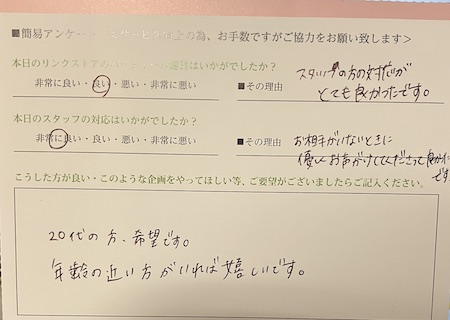 ■簡易アンケー 上の為、お手数ですがご協力をお願い致します>
本日のリンクストアの はいかがでしたか?
非常に良い・良い・悪い・非常に悪い
■その理由
スタッフの方の対応が
とても良かったです。
本日のスタッフの対応はいかがでしたか?
非常に良い・良い・悪い・非常に悪い
■その理由
お相手がいないときに
優しくお声がけしてくださって良かった
です。
こうした方が良い・このような企画をやってほしい等、ご要望がございましたらご記入ください。
20代の方、希望です。
年齢の近い方がいれば嬉しいです。